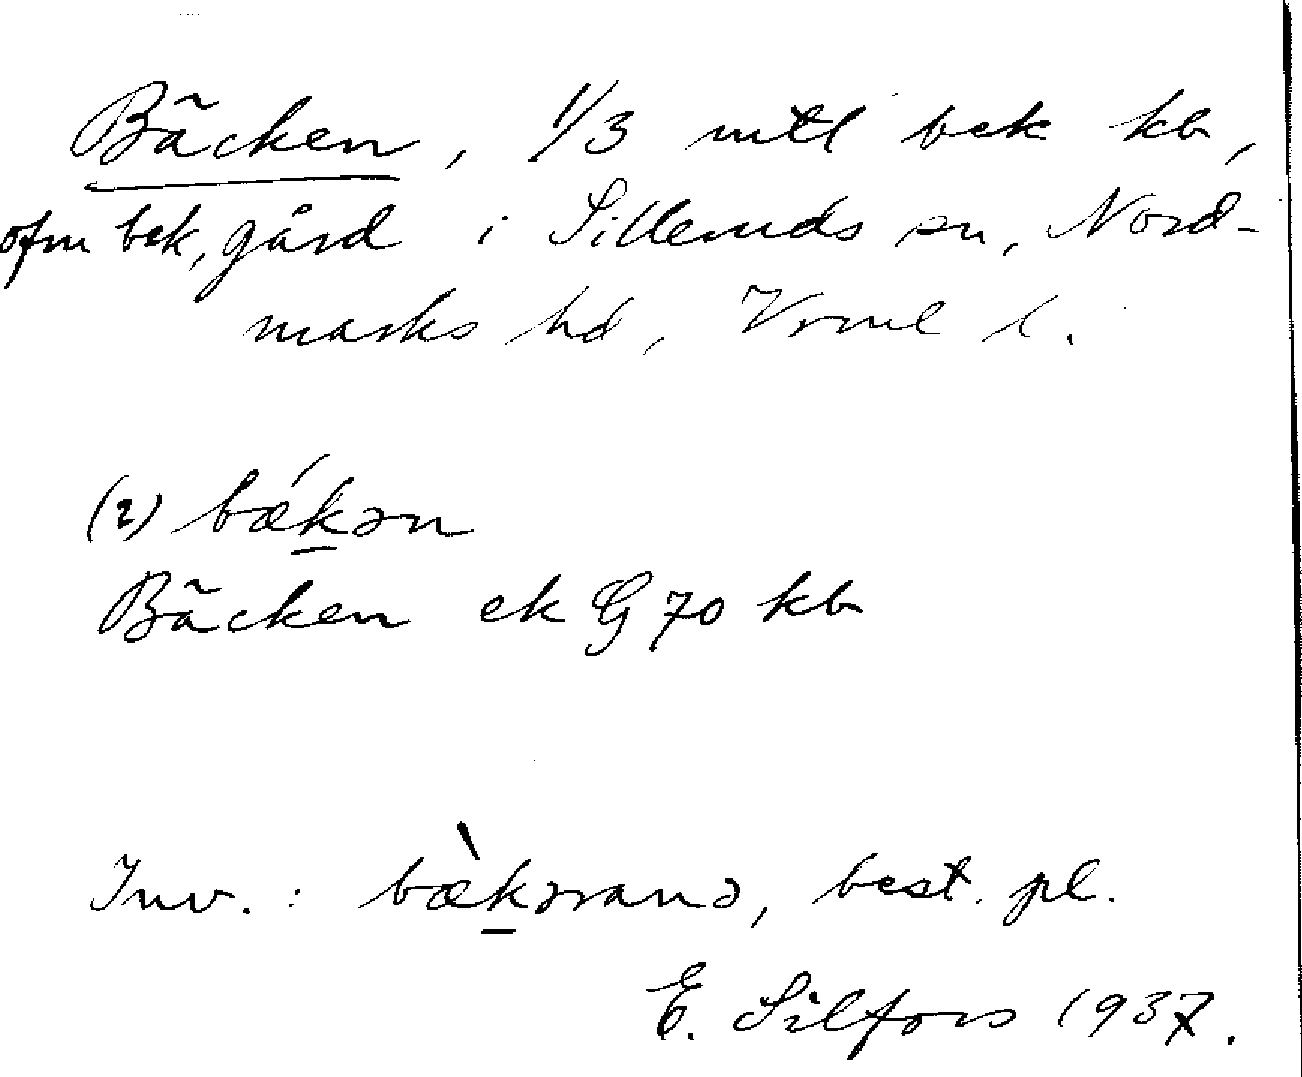 Bäcken, 1/3 mtl bek kb,
ofm bek, gård i Silleruds sn, Nord-
marks hd, Vrml l.
(2) bǽk̲ən
Bäcken ek G 70 kb
Inv. : bæ̀k̲əranə, best. pl.
E. Silfors 1937.